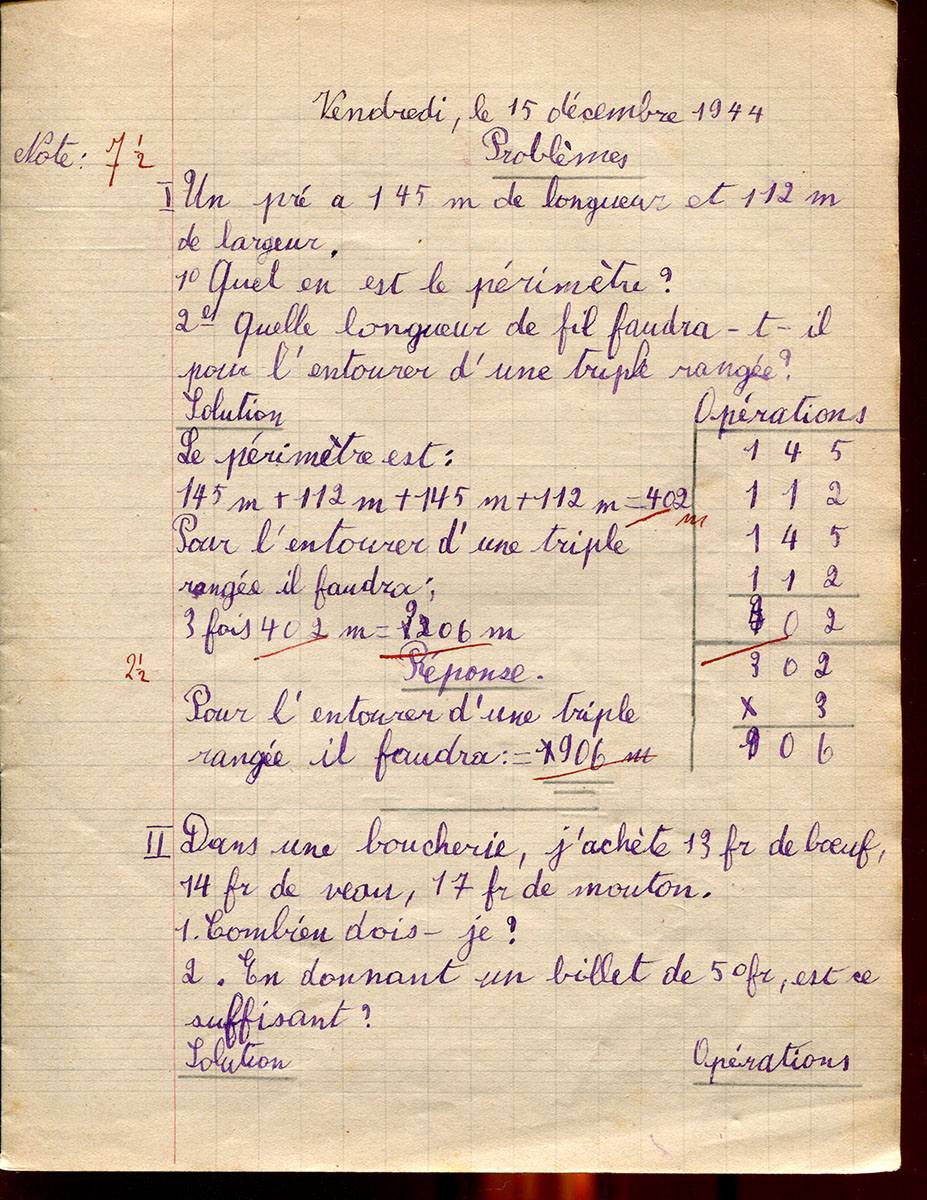 Vendredi, le 15 décembre 1944
Note: 7 1/2
Problèmes
I Un pré a 145 m de longueur et 112 m
de largeur.
1º Quel en est le périmètre?
2e Quelle longueur de fil faudra-t-il
pour l'entourer d'une triple rangée?
Solution
Le périmètre est:
145 m + 112 m + 145 m + 112 m = 402
m
Pour l'entourer d'une triple
rangée il faudra:
3 fois 402 m = 1206 m
2 1/2
Réponse.
Pour l'entourer d'une triple
rangée il faudra: = 906 m
Opérations
1 4 5
1 1 2
1 4 5
1 1 2
0 2
3 0 2
x 3
9 0 6
II Dans une boucherie, j'achète 13 fr de bœuf,
14 fr de veau, 17 fr de mouton.
1. Combien dois-je?
2. En donnant un billet de 50 fr, est ce
suffisant?
Solution
Opérations